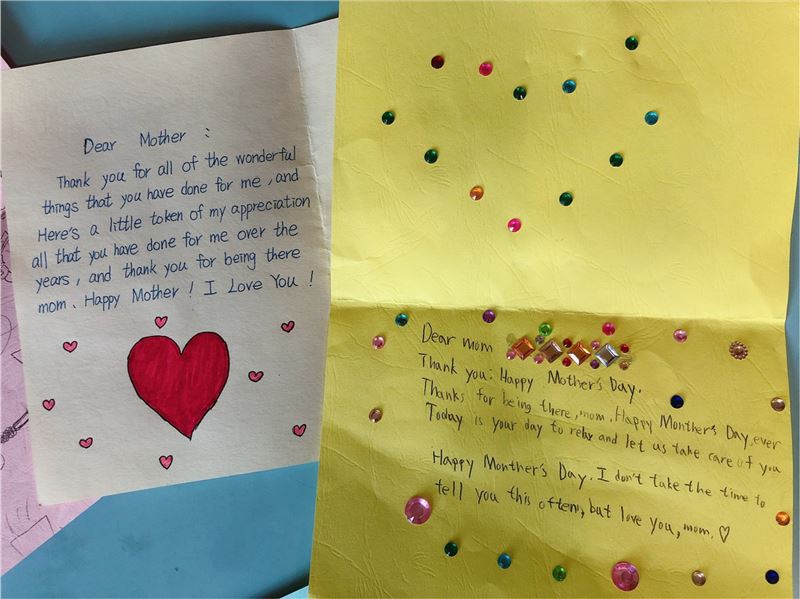 Dear Mother :
Thank you for all of the wonderful
things that you have done for me , and
Here's a little token of my appreciation
all that you have done for me over the
years , and thank you for being there
mom . Happy Mother ! I Love You !
Dear mom
Thank you : Happy Mother's Day .
Thanks for being there , mom . Happy Monther's Day , ever
Today is your day to relax and let us take care of you
Happy Monther's Day . I don't take the time to
tell you this often , but love you , mom . ♡